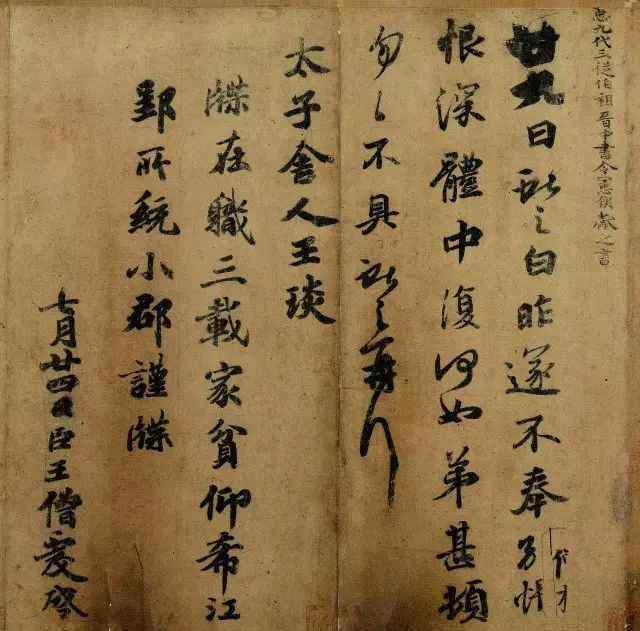 臣九代三從伯祖晉中書令憲侯獻之書
廿九日獻之白昨遂不奉別悵
恨深體中復何如弟甚頓
匆匆不具獻之再拜
太子舍人王琰
牒在職三載家貧仰希江
郢所統小郡謹牒
七月廿四日臣王僧虔啓